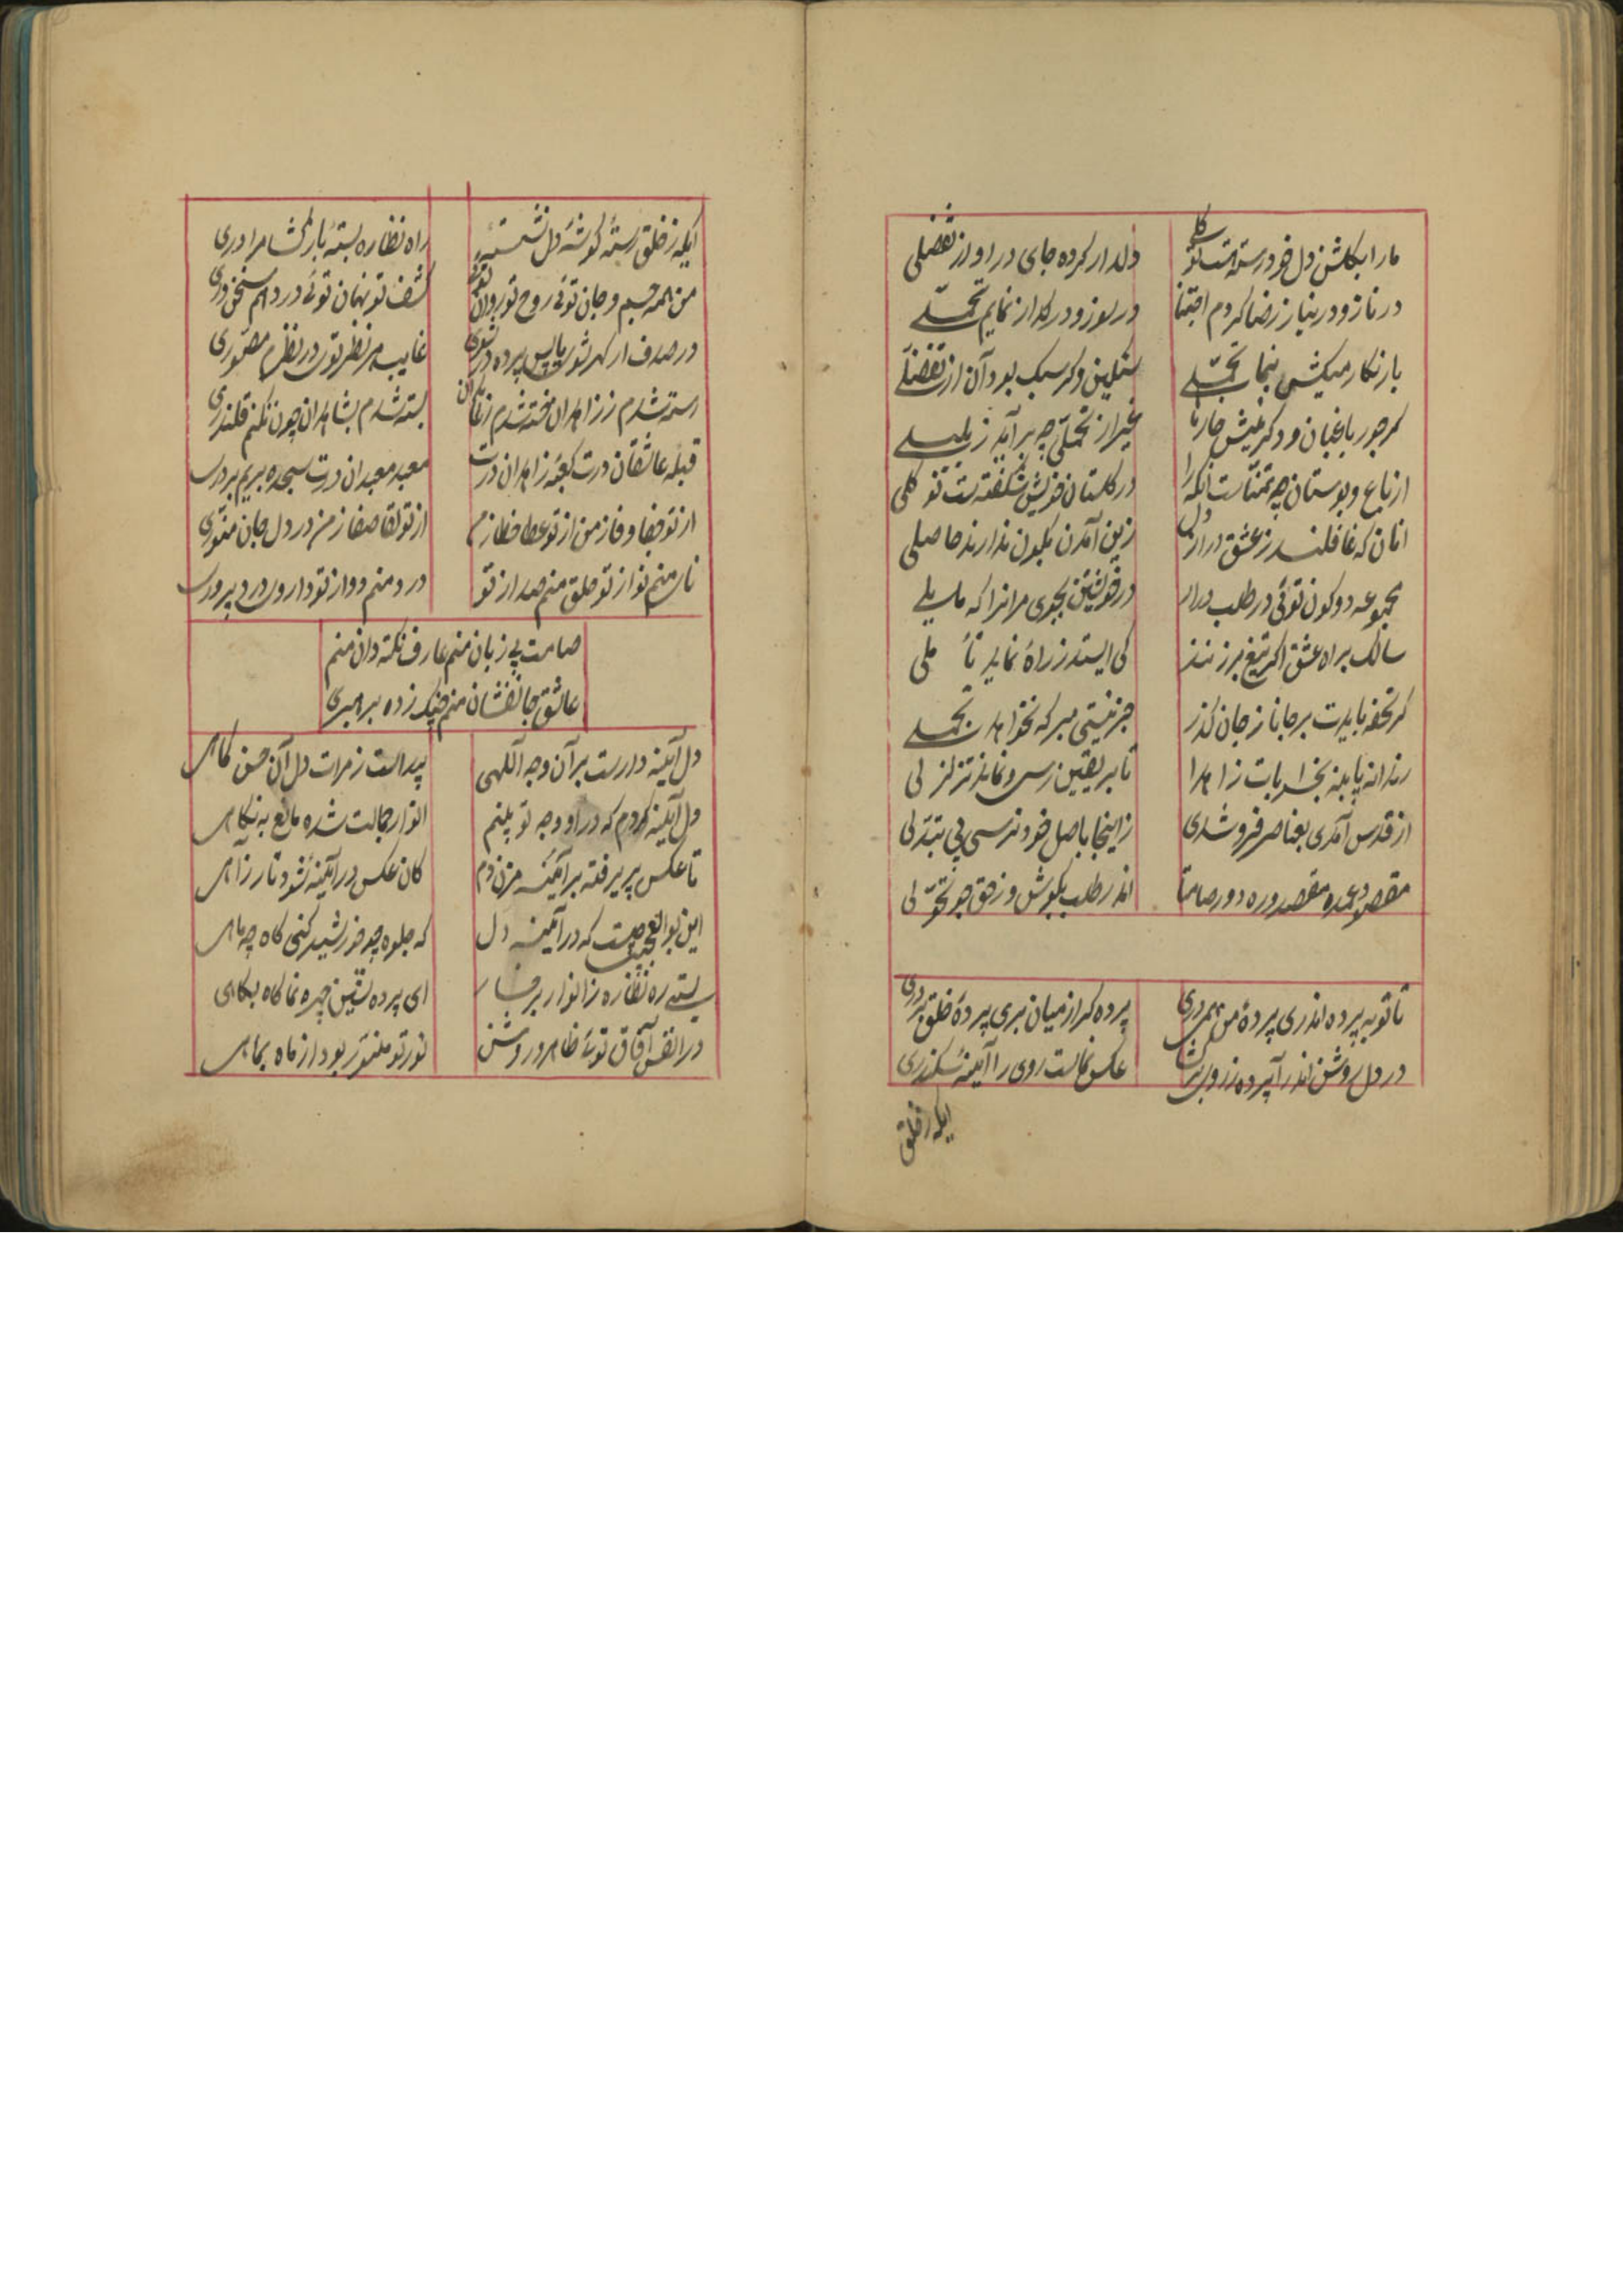 ما را بکلشن دل خود رسته است نو کلی
دلدار کرده جای در او از تفضلی
در ناز و در نیاز ز رضا کردم اجتنا
در سوز و در کداز نمایم تحملی
بار نکار میکشی بنما تحملی
سنکین و کر سبک بود آن از تفضلی
کر جور باغبان و دکر نیش خارها
غیر از تحملی چه برآید ز بلبلی
از باغ و بوستان چه تمناست آنکه را
در کلستان خویش شکفته است نو کلی
آنان که غافلند ز عشق دل
زین آمدن بکون ندارند حاصلی
مجموعه دو کون توئی در طلب درا
در خویشتن بجوی مر انرا که مایلی
سالک براه عشق اکر تیغ برزنند
کی ایستد ز راه نماید تأملی
کر تحفه بایدت بر جانا ز جان کذر
جز نیستی مبر که نخواهد تجملی
رندانه پا بنه بخرابات زاهدا
تا بر یقین رسی و نماند تزلزلی
از قدس آمدی بعناصر فرو شدی
ز اینجا باصل خود نرسی بی تبدلی
مقصود عمده مقصد و ره دور صامتا
اندر طلب بکوش و ز حق جو تحولی
تا تو به پرده اندری پرده من همی دری
پرده کر از میان بری پرده خلق بردری
در دل روشن اندرآ پرده ز روی برکشا
عکس جمالت روی را آینه سکندری
ایکه ز خلق
ایکه ز خلق رسته کوشه دل نشسته
راه نظاره بسته بازکشا مرا دری
من همه جسم و جان توئی روح تو روان توئی
کشف تو نهان توئی در دلم سخنوری
در صدف ار کهر شوی یا پس پرده در شوی
غایب هر نظر شوی در نظرم مصوری
رسته شدم ز زاهدان خسته شدم ز عابدان
بسته شدم بشاهدان چون نکنم قلندری
قبله عاشقان درت کعبه زاهدان درت
معبد معبدان درت سجده بریم بر دری
از تو جفا وفا ز من از تو عطا خطا ز من
از تو لقا صفا ز من در دل و جان منوری
نای منم نوا ز تو حلق منم صدا ز تو
درد منم دوا ز تو داروی درد پروری
صامت بی زبان منم عارف نکته دان منم
عاشق جانفشان منم چنک زده بر هبری
دل آینه دارست بر آن وجه آلهی
پیداست ز مرات دل آن حسن کماهی
دل آینه کردم که در او وجه تو بینم
انوار جمالت شده مانع به نکاهی
تا عکس پذیرفته بر آیینه مزن دم
کان عکس در آیینه شود تار ز آهی
این بوالعجبی چیست که در آینه دل
که جلوه چو خورشید کنی کاه چو ماهی
بستی ره نظاره ز انوار برخسار
ای پرده نشین چهره نما کاه بکاهی
در انفس و آفاق توئی ظاهر و روشن
نور تو منور بود از ماه بماهی